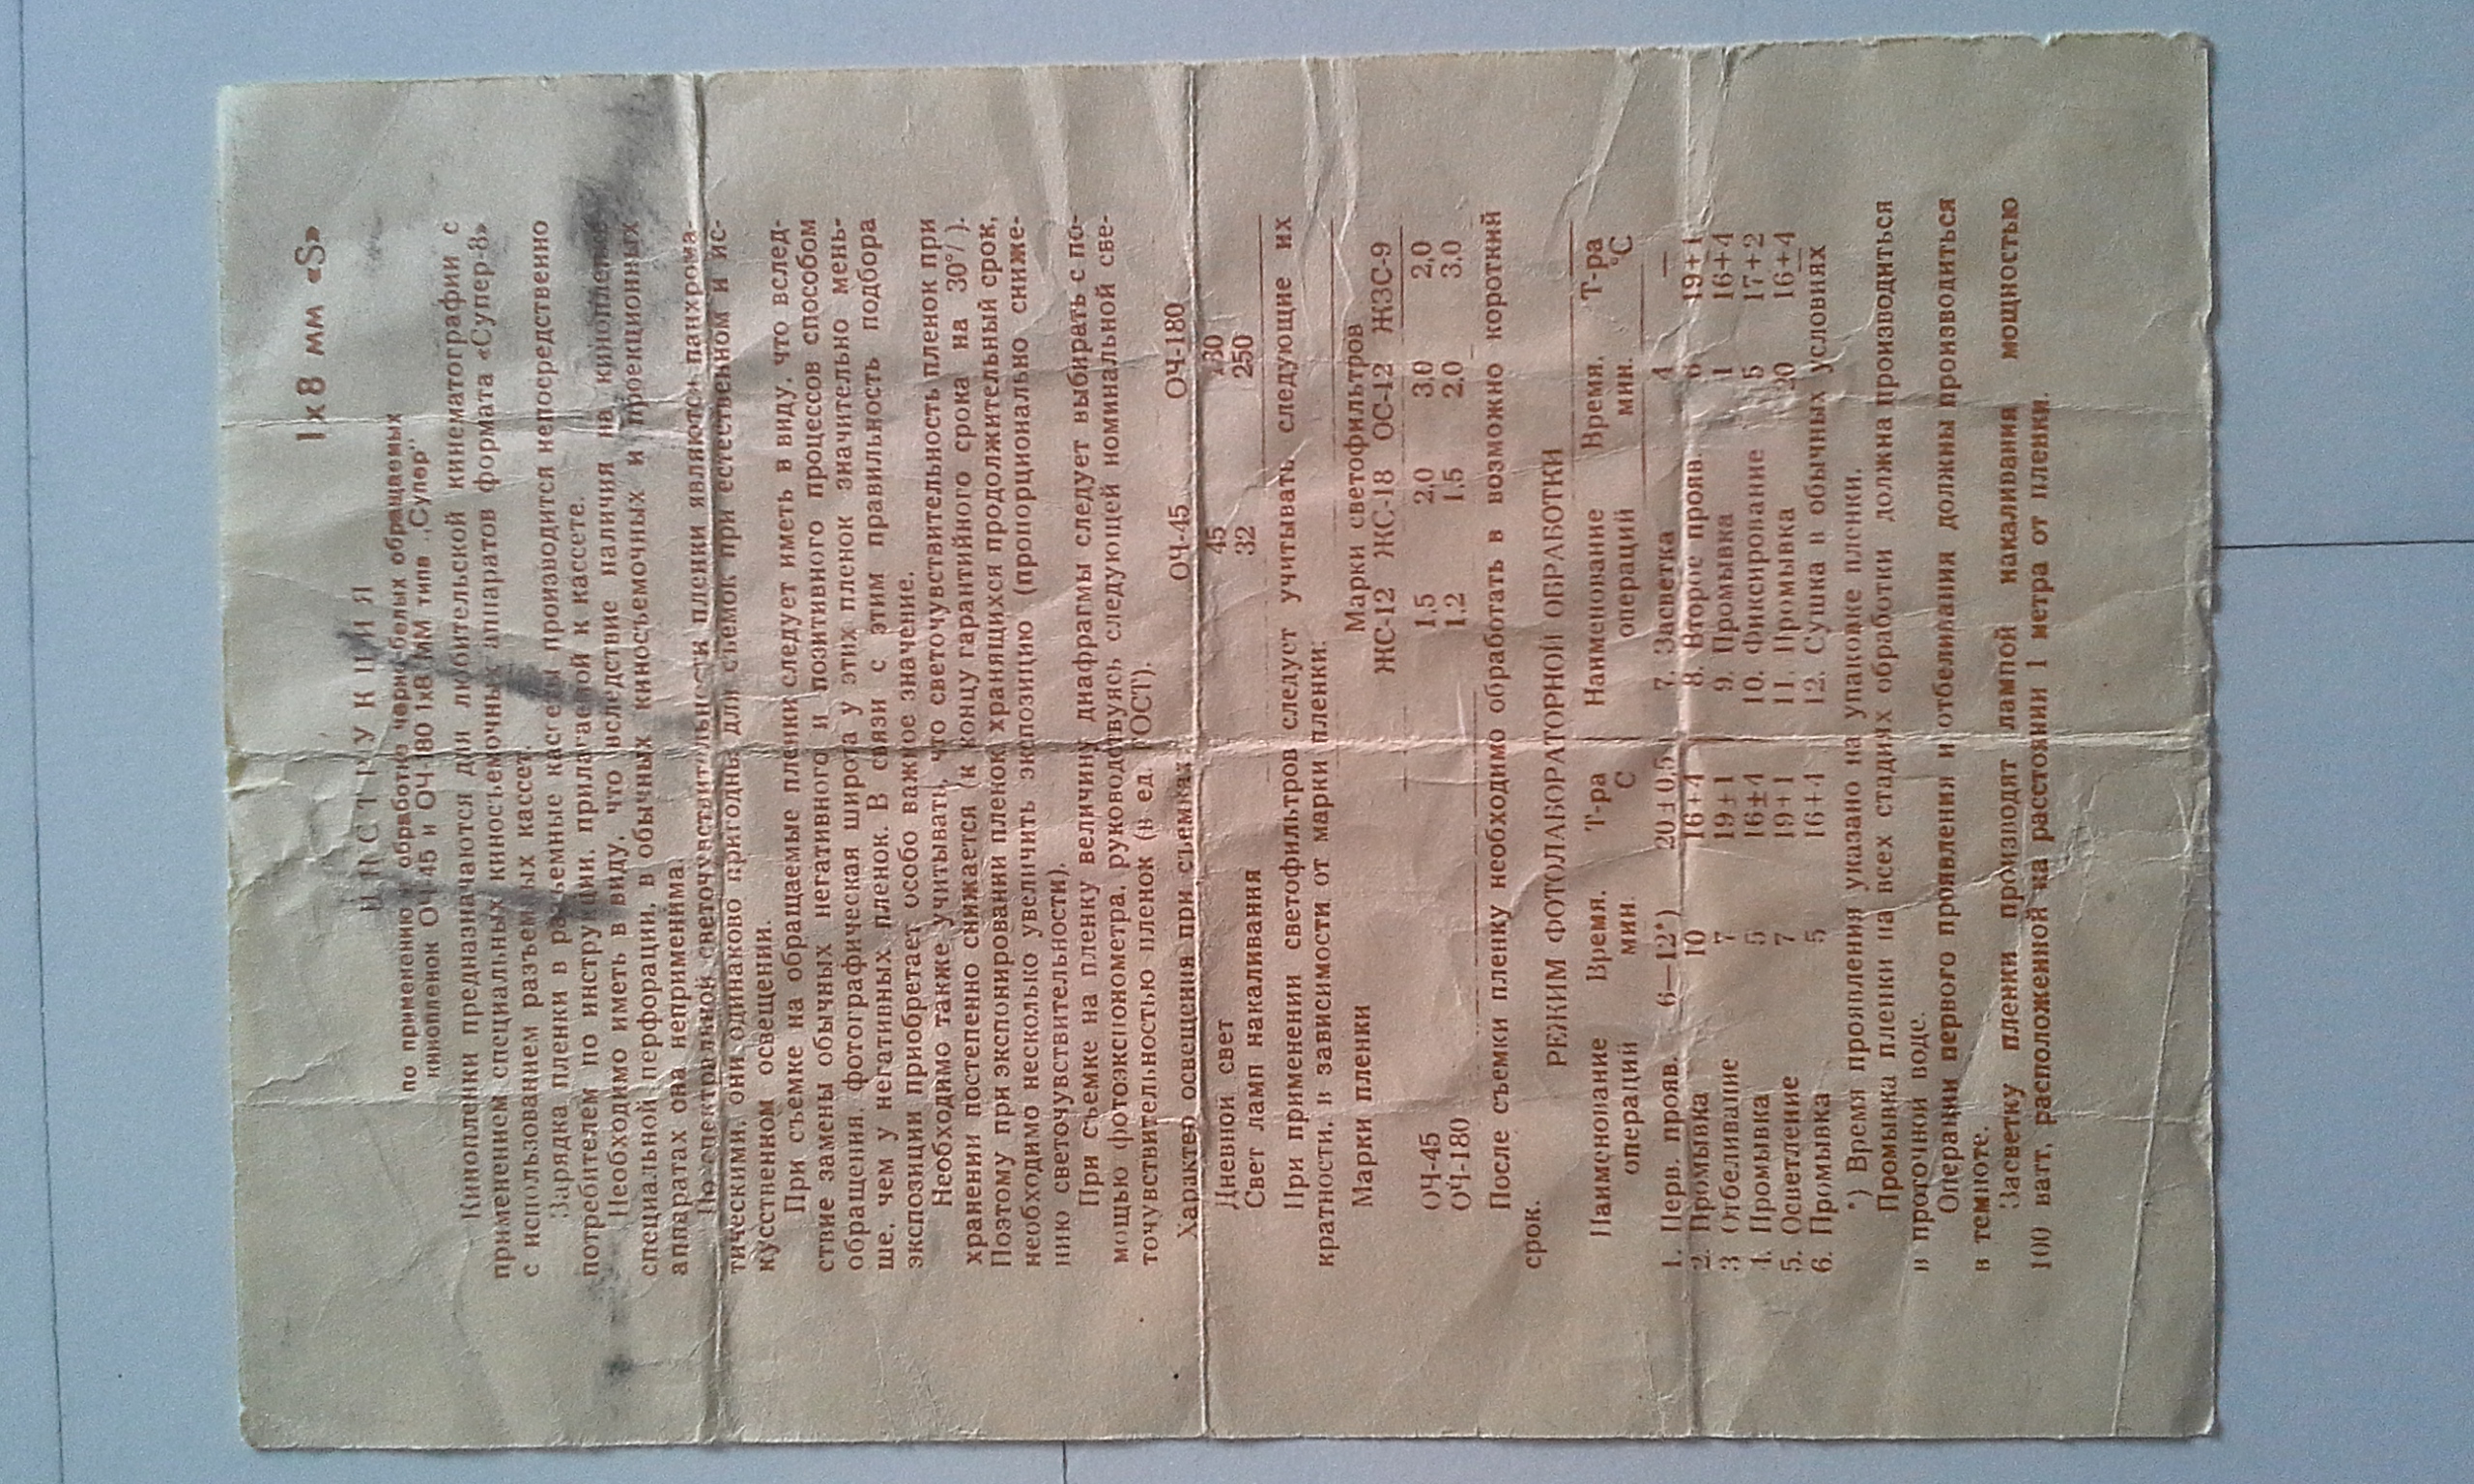 1х8 мм «S»
ИНСТРУКЦИЯ
по применению и обработке черно-белых обращаемых
кинопленок ОЧ-45 и ОЧ-180 1х8 мм типа „Супер"
Кинопленки предназначаются для любительской кинематографии с
применением специальных киносъемочных аппаратов формата «Супер-8»
с использованием разъемных кассет.
Зарядка пленки в разъемные кассеты производится непосредственно
потребителем по инструкции, прилагаемой к кассете.
Необходимо иметь в виду, что вследствие наличия на кинопленке
специальной перфорации, в обычных киносъемочных и проекционных
аппаратах она неприменима.
По спектральной светочувствительности пленки являются панхрома-
тическими, они одинаково пригодны для съемок при естественном и ис-
кусственном освещении.
При съемке на обращаемые пленки следует иметь в виду, что вслед-
ствие замены обычных негативного и позитивного процессов способом
обращения, фотографическая широта у этих пленок значительно мень-
ше, чем у негативных пленок. В связи с этим правильность подбора
экспозиции приобретает особо важное значение.
Необходимо также учитывать, что светочувствительность пленок при
хранении постепенно снижается (к концу гарантийного срока на 30%).
Поэтому при экспонировании пленок, хранящихся продолжительный срок,
необходимо несколько увеличить экспозицию (пропорционально сниже-
нию светочувствительности).
При съемке на пленку величину диафрагмы следует выбирать с по-
мощью фотоэкспонометра, руководствуясь следующей номинальной све-
точувствительностью пленок (в ед. ГОСТ).
Характер освещения при съемках ОЧ-45 ОЧ-180
Дневной свет 45 180
Свет ламп накаливания 32 250
При применении светофильтров следует учитывать следующие их
кратности, в зависимости от марки пленки:
Марки пленки Марки светофильтров
ЖС-12 ЖС-18 ОС-12 ЖЗС-9
ОЧ-45 1,5 2,0 3,0 2,0
ОЧ-180 1,2 1,5 2,0 3,0
После съемки пленку необходимо обработать в возможно короткий
срок.
РЕЖИМ ФОТОЛАБОРАТОРНОЙ ОБРАБОТКИ
Наименование Время. Т-ра Наименование Время. Т-ра
операций мин. С операций мин. °С
1. Перв. прояв. 6—12*) 20±0,5 7. Засветка 4 —
2. Промывка 10 16+4 8. Второе прояв. 6 19+1
3 Отбеливание 7 19±1 9. Промывка 1 16+4
4. Промывка 5 16±4 10. Фиксирование 5 17+2
5. Осветление 7 19+1 11. Промывка 20 16+4
6. Промывка 5 16+4 12. Сушка в обычных условиях
*) Время проявления указано на упаковке пленки.
Промывка пленки на всех стадиях обработки должна производиться
в проточной воде.
Операции первого проявления и отбеливания должны производиться
в темноте.
Засветку пленки производят лампой накаливания мощностью
100 ватт, расположенной на расстоянии 1 метра от пленки.